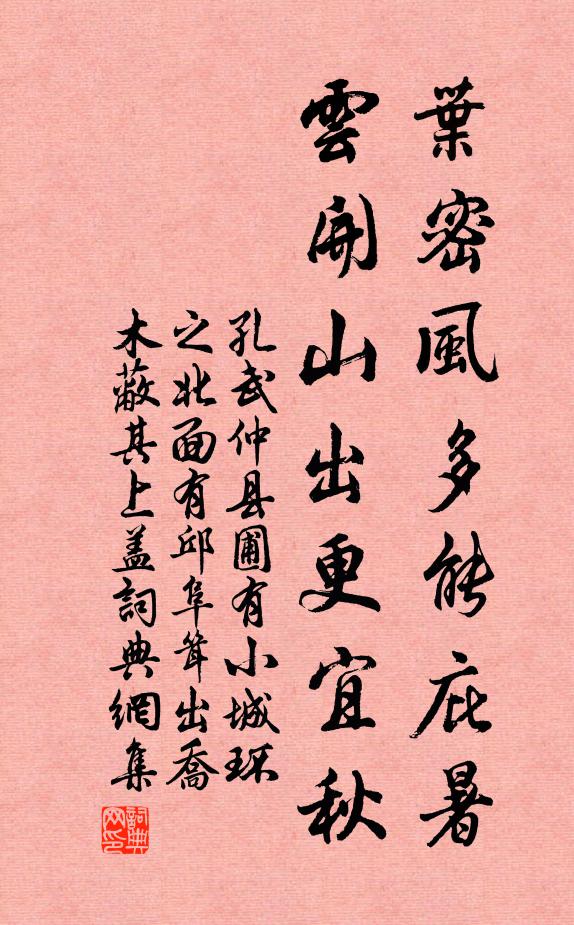 葉密風多能庇暑
雲開山出更宜秋
孔武仲县圃有小城环
之北面有邱阜耸出喬
木蔽其上盖詞典網集
詞典
网印